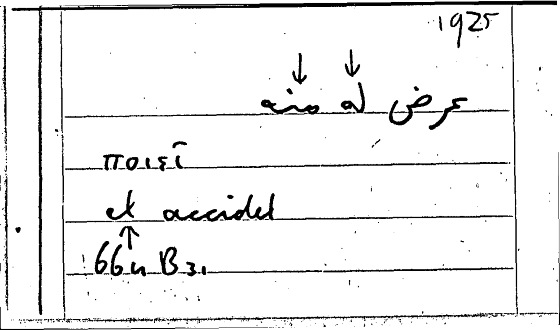 1925
↓ ↓
عرض له منه
ποιεῖ
et accidet
↑
664 B 31